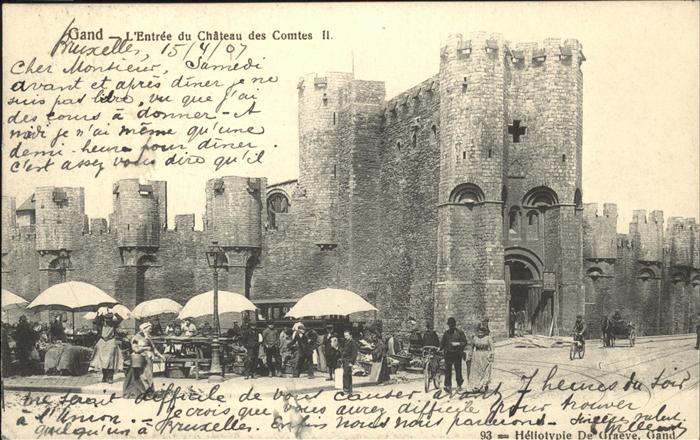 Gand - L'Entrée du Château des Comtes II.
Bruxelles, 15/4/07
Cher Monsieur, Samedi
avant et après dîner je ne
suis pas libre, vu que j'ai
des cours à donner - A
midi je n'ai même qu'une
demi-heure pour dîner.
C'est assez vous dire qu'il
me serait difficile de vous causer avant 7 heures du soir
à l'Union. - Je crois que vous aurez difficile pour trouver
quelqu'un à Bruxelles. Enfin nous nous parlerons -
93 - Héliotypie De Graeve, Gand